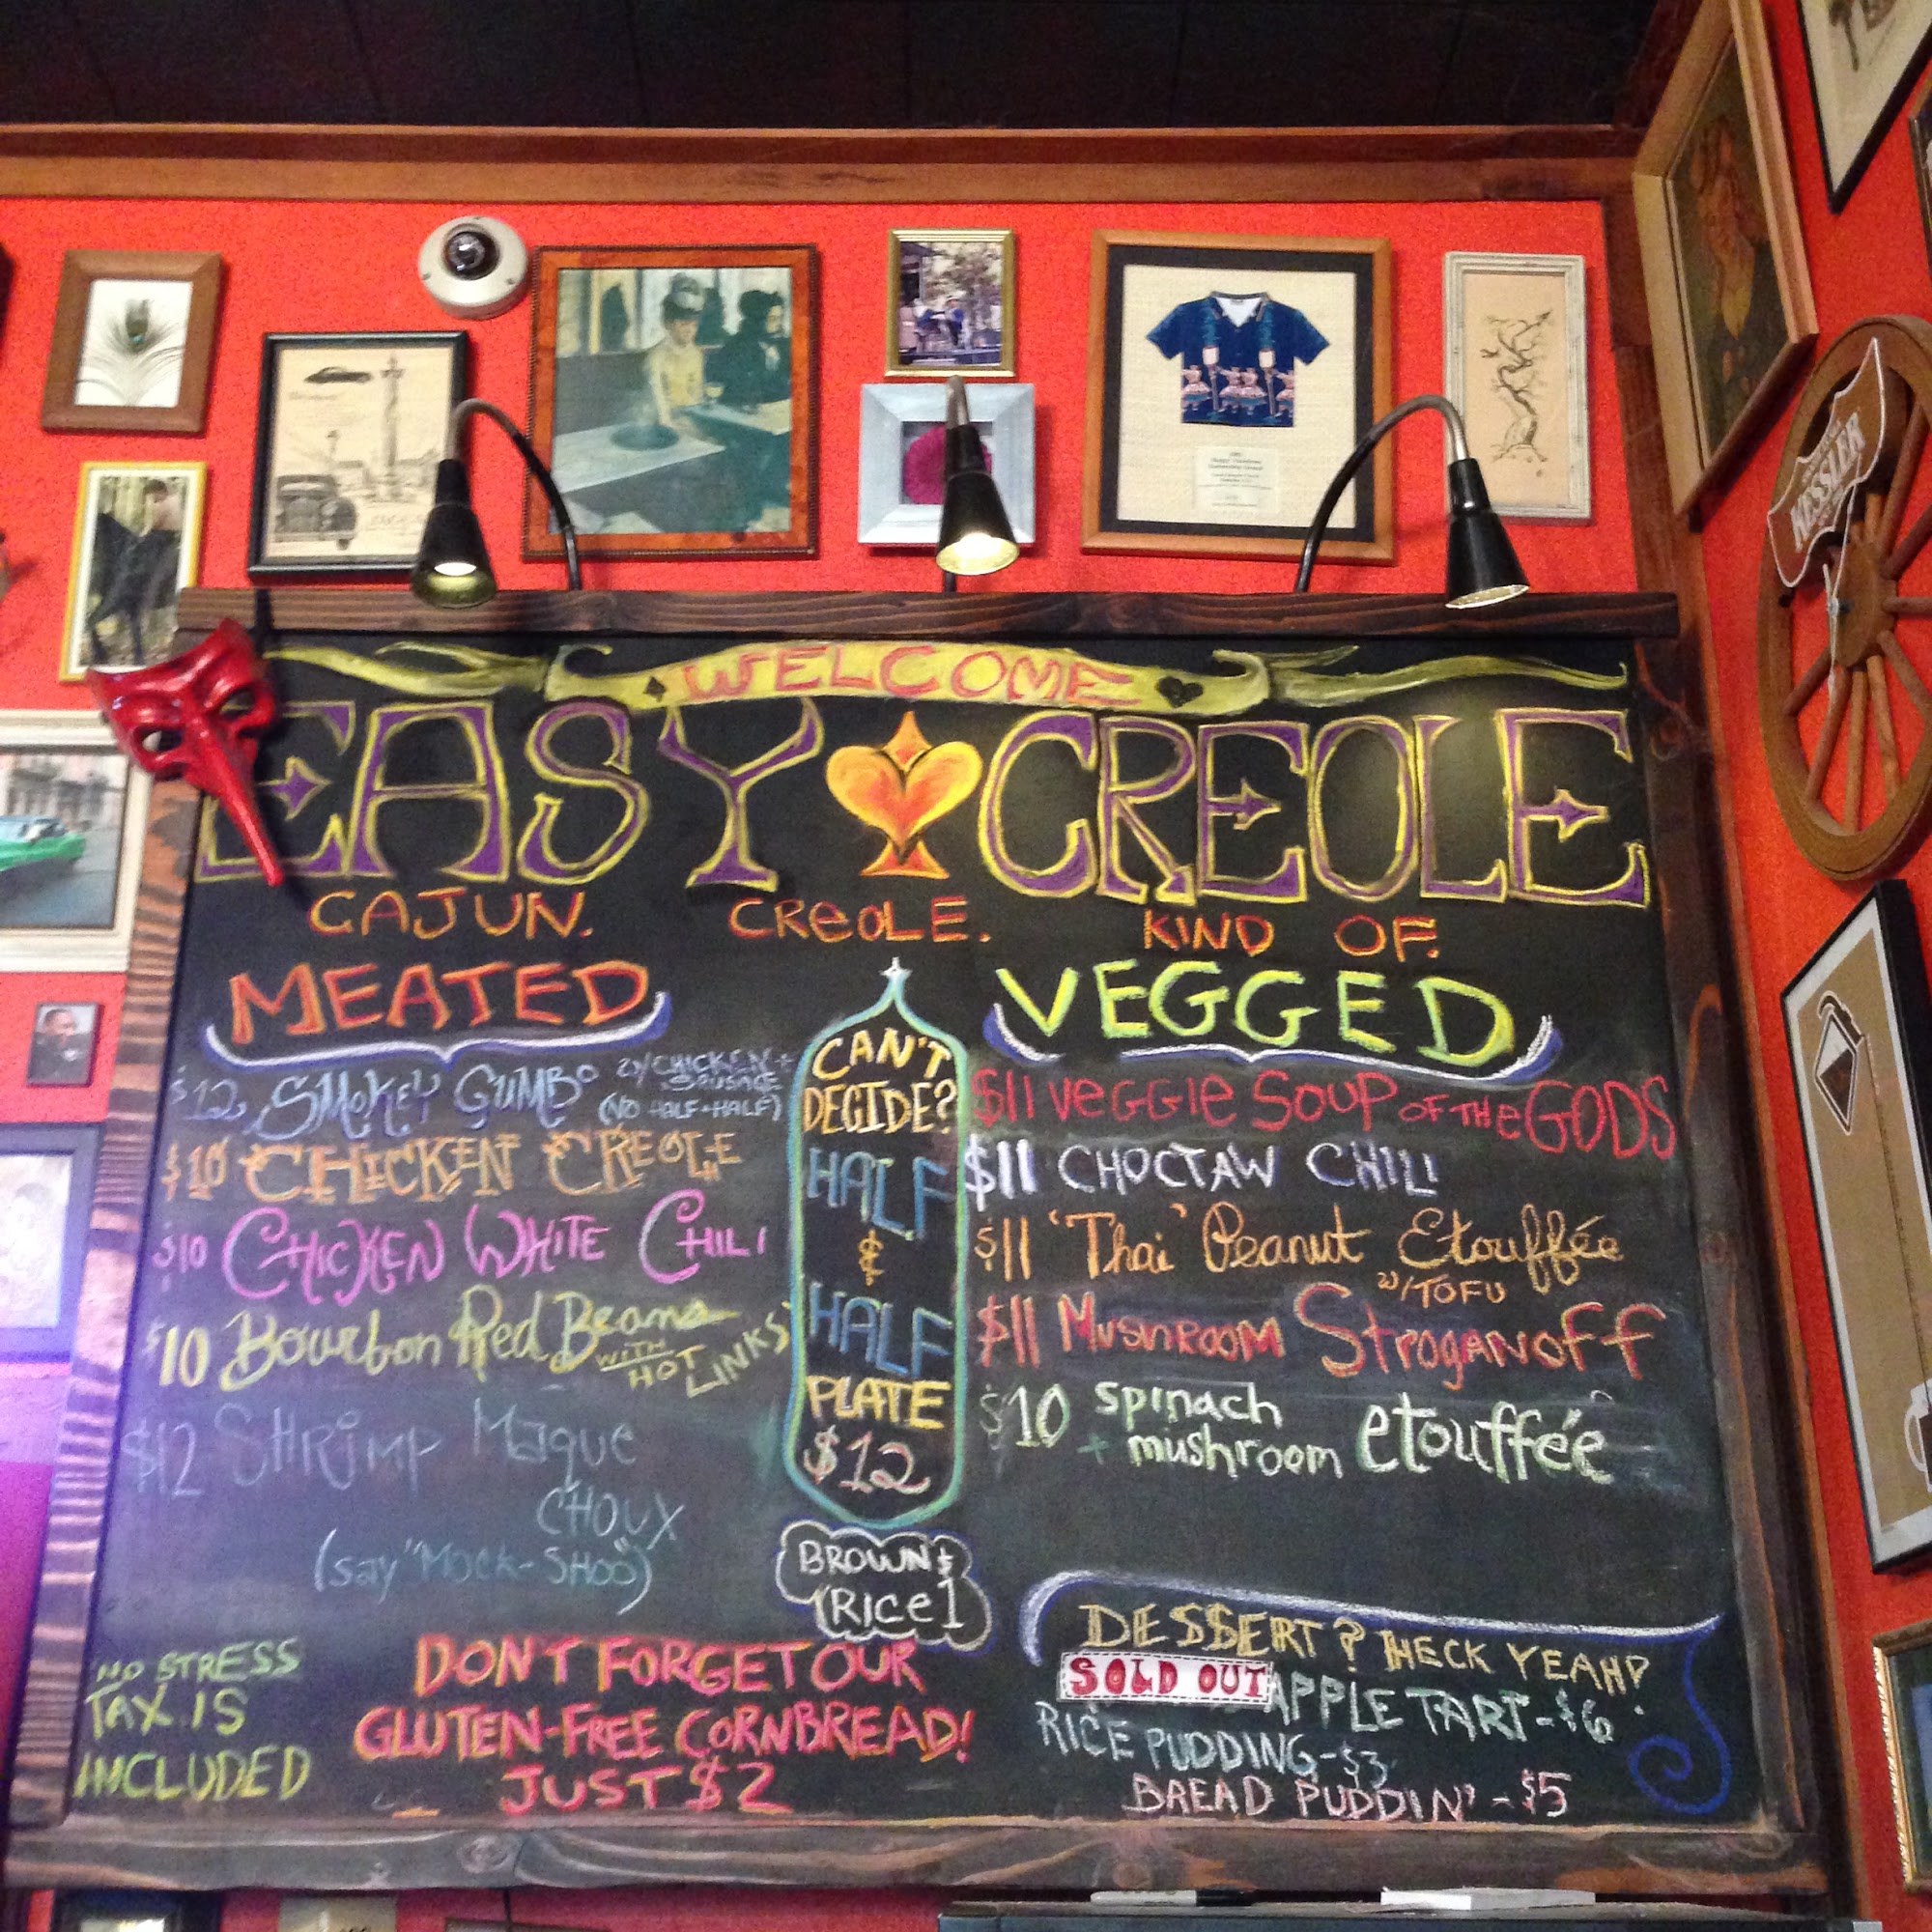 WELCOME
EASY CREOLE
CAJUN. CREOLE. KIND OF.
MEATED
$12 SMOKEY GUMBO W/ CHICKEN + SAUSAGE
(NO HALF + HALF)
$10 CHICKEN CREOLE
$10 CHICKEN WHITE CHILI
$10 Bourbon Red Beans WITH HOT LINKS
$12 SHRIMP Maque
CHOUX
(say "Mock-SHOO")
CAN'T
DECIDE?
HALF
&
HALF
PLATE
$12
BROWN $
RICE 1
VEGGED
$11 VEGGIE SOUP OF THE GODS
$11 CHOCTAW CHILI
$11 'Thai' Peanut Etouffée
W/TOFU
$11 MUSHROOM STROGANOFF
$10 spinach
+ mushroom etouffée
NO STRESS
TAX IS
INCLUDED
DON'T FORGET OUR
GLUTEN-FREE CORNBREAD!
JUST $2
DESSERT? HECK YEAH!
SOLD OUT APPLE TART - $6
RICE PUDDING - $3
BREAD PUDDIN' - $5
KESSLER